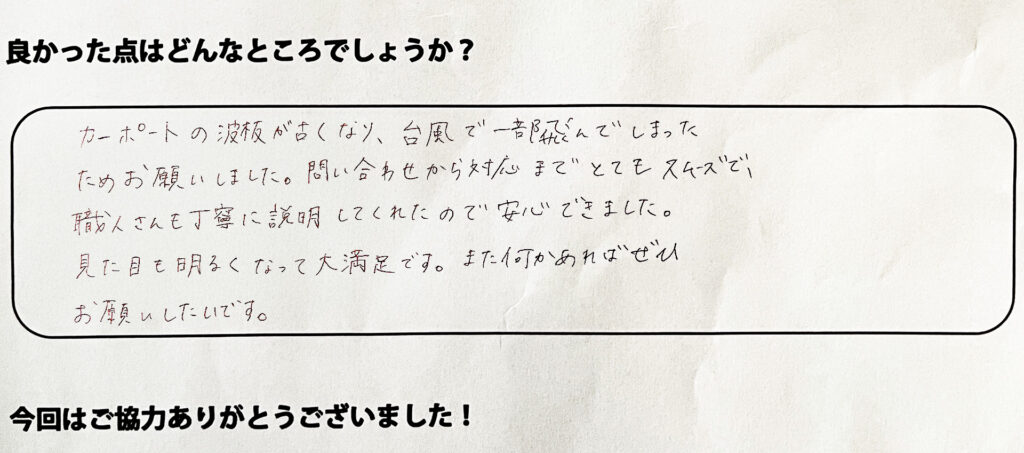 良かった点はどんなところでしょうか？
カーポートの波板が古くなり、台風で一部飛んでしまった
ためお願いしました。問い合わせから対応までとてもスムーズで、
職人さんも丁寧に説明してくれたので安心できました。
見た目も明るくなって大満足です。また何かあればぜひ
お願いしたいです。
今回はご協力ありがとうございました！